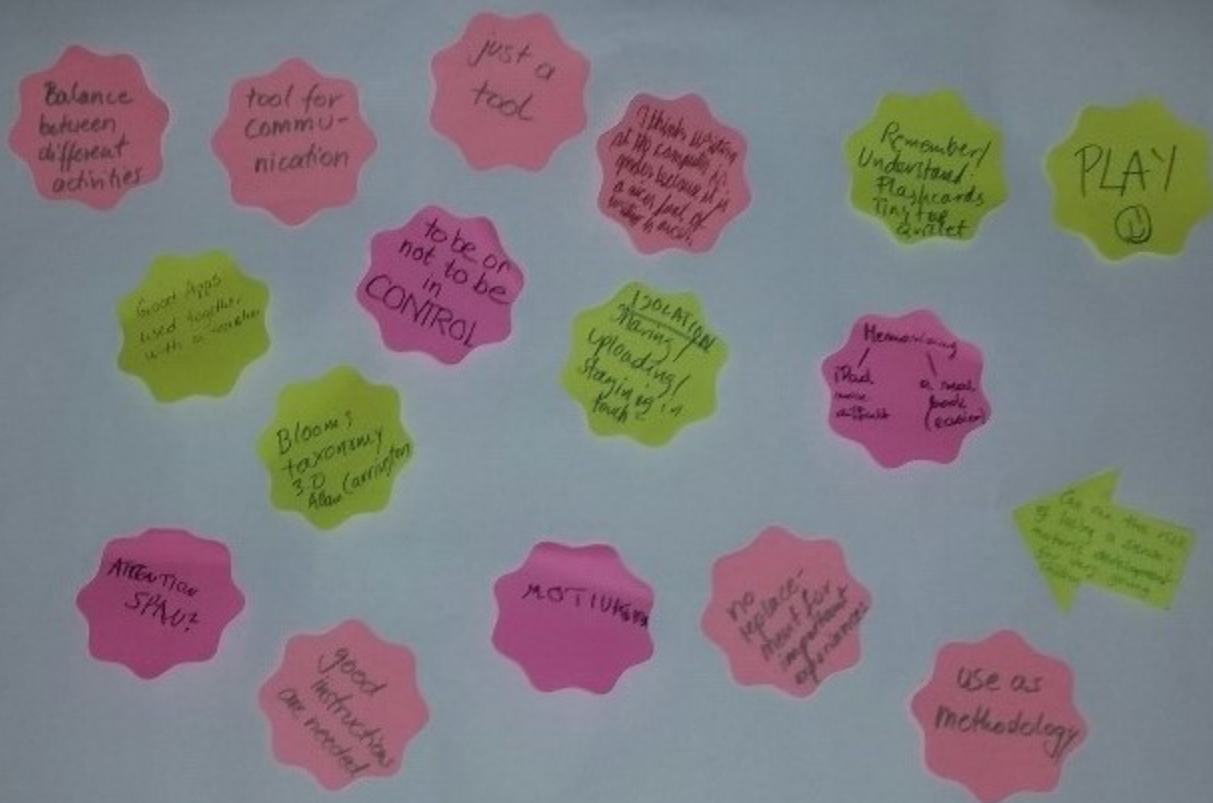 Balance
between
different
activities
tool for
commu-
nication
just a
tool
I think writing
at the computer is
because it is
a nice feel of
Remember/
Understand
Flashcards
Tinytap
Quizlet
PLAY
Good Apps
used together
with a teacher
to be or
not to be
in
CONTROL
ISOLATION
Sharing/
uploading/
staying in
touch
Memorizing
iPad
more
difficult
a real
book
(easier)
Blooms
taxonomy
3.0
Allan Carrington
Can run the risk
of losing a sense
motoric development
for very young
ATTENTION
SPAN?
MOTIVATION
no
replace-
ment for
important
experiences
good
instructions
are needed
use as
methodology